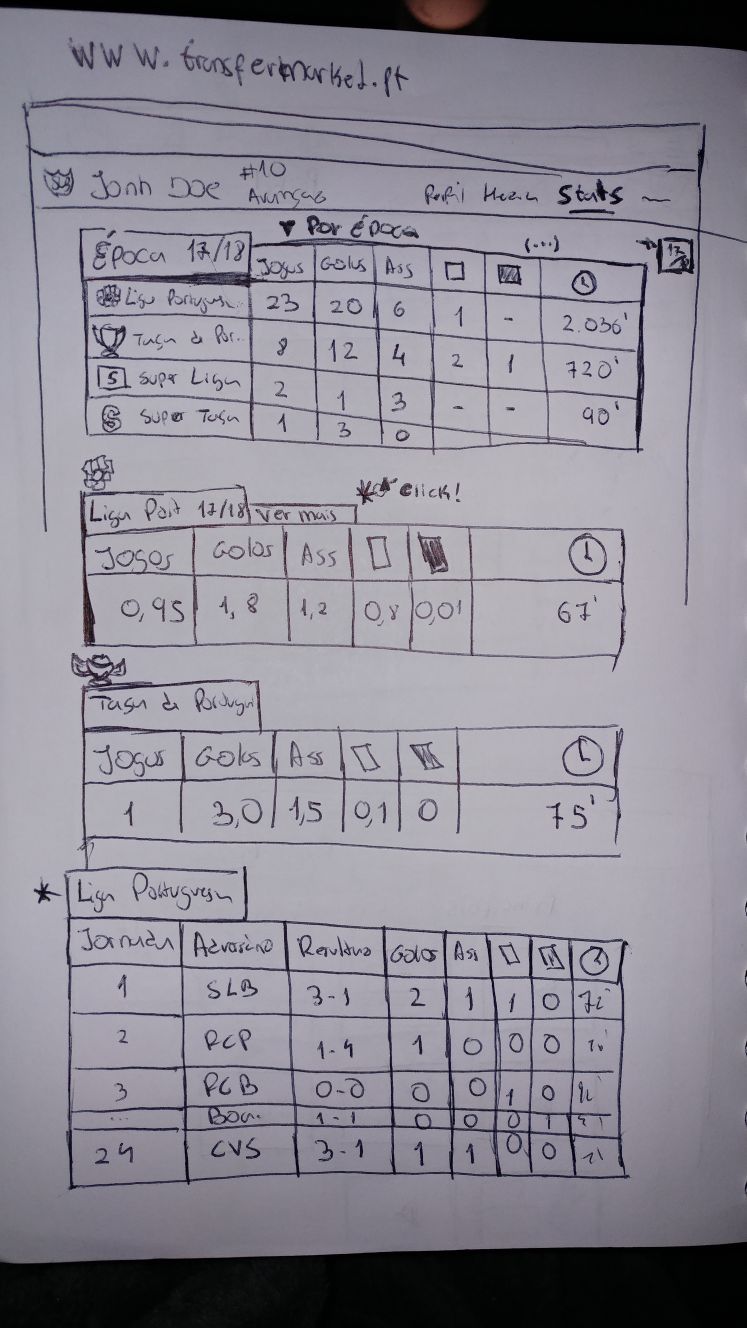 www.transfermarket.pt
Jonh Doe #10
Avançado
Perfil Stats
▼ Por Época
(...)
17/18
Época 17/18 Jogos Golos Ass
Liga Portugues.. 23 20 6 1 - 2.036'
Taça de Por.. 8 12 4 2 1 720'
5 Super Liga 2 1 3 - - 90'
Super Taça 1 3 0
* click!
Liga Port 17/18 ver mais
Jogos Golos Ass
0,95 1,8 1,2 0,8 0,01 67'
Taça de Portugal
Jogos Golos Ass
1 3,0 1,5 0,1 0 75'
* Liga Portuguesa
Jornada Adversário Resultado Golos Ass
1 SLB 3-1 2 1 1 0
2 1-4 1 0 0 0
3 0-0 0 0 1 0
... Boa. 1-1 0 0 0 1
24 CVS 3-1 1 1 0 0